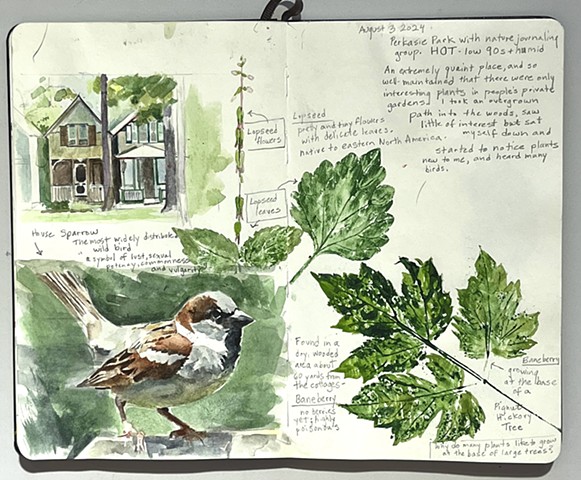 August 3 2024
Perkasie Park with nature journaling
group. HOT - low 90s + humid
An extremely quaint place, and so
well-maintained that there were only
interesting plants in people's private
gardens. I took an overgrown
path into the woods, saw
little of interest but sat
myself down and
started to notice plants
new to me, and heard many
birds.
Lopseed
flowers
Lopseed
pretty and tiny flowers
with delicate leaves.
native to eastern North America.
Lopseed
leaves
House Sparrow
The most widely distributed
wild bird
a symbol of lust, sexual
potency, commonness
and vulgarity
Found in a
dry, wooded
area about
60 yards from
the cottages-
Baneberry
no berries
yet; highly
poisonous
Baneberry
growing
at the base
of a
Pignut
Hickory
Tree
Why do many plants like to grow
at the base of large trees?